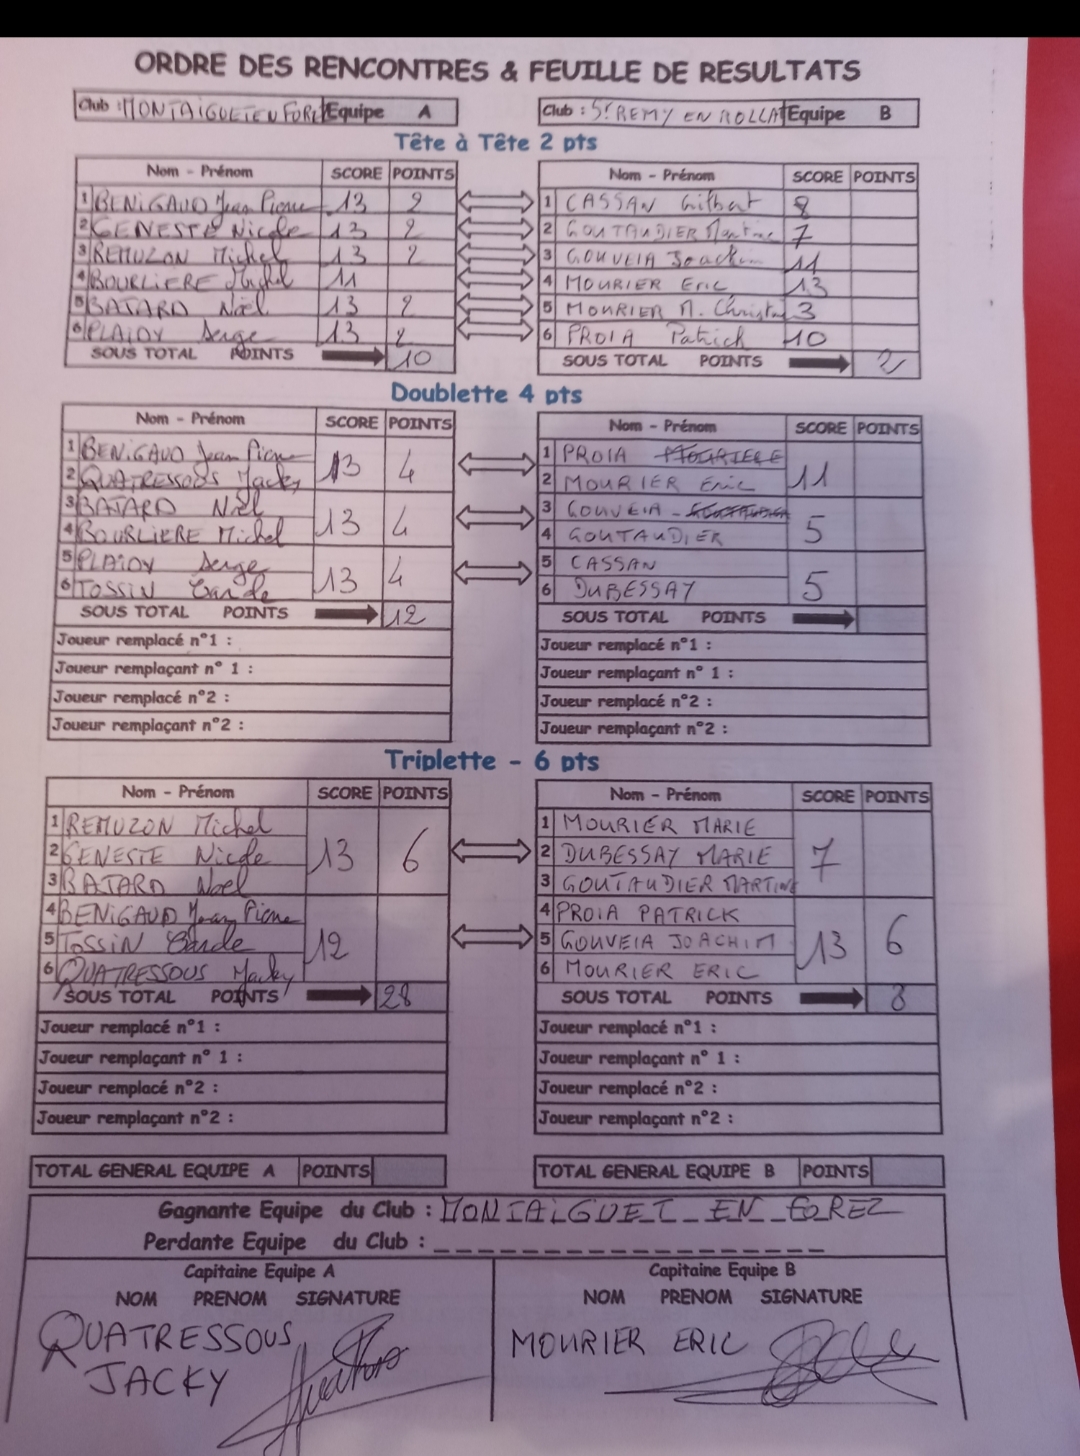 ORDRE DES RENCONTRES & FEUILLE DE RESULTATS
Club : MONTAIGUET EN FOREZ Equipe A Club : St REMY EN ROLLAT Equipe B
Tête à Tête 2 pts
Nom - Prénom SCORE POINTS Nom - Prénom SCORE POINTS
1 BENIGAUD Jean Pierre 13 2 1 CASSAN Gilbert 8
2 GENESTE Nicole 13 2 2 GOUTAUDIER Martine 7
3 REMUZON Michel 13 2 3 GOUVEIA Joachim 11
4 BOURLIERE Michel 11 4 MOURIER Eric 13
5 BATARD Noël 13 2 5 MOURIER M. Christ 3
6 PLAIDY Serge 13 2 6 PROIA Patrick 10
SOUS TOTAL POINTS 10 SOUS TOTAL POINTS 2
Doublette 4 pts
Nom - Prénom SCORE POINTS Nom - Prénom SCORE POINTS
1 BENIGAUD Jean Pierre 13 4 1 PROIA 11
2 QUATRESSOUS Jacky 2 MOURIER Eric
3 BATARD Noël 13 4 3 GOUVEIA 5
4 BOURLIERE Michel 4 GOUTAUDIER
5 PLAIDY Serge 13 4 5 CASSAN 5
6 TOSSIN 6 DUBESSAY
SOUS TOTAL POINTS 12 SOUS TOTAL POINTS
Joueur remplacé n°1 : Joueur remplacé n°1 :
Joueur remplaçant n° 1 : Joueur remplaçant n° 1 :
Joueur remplacé n°2 : Joueur remplacé n°2 :
Joueur remplaçant n°2 : Joueur remplaçant n°2 :
Triplette - 6 pts
Nom - Prénom SCORE POINTS Nom - Prénom SCORE POINTS
1 REMUZON Michel 13 6 1 MOURIER MARIE 7
2 GENESTE Nicole 2 DUBESSAY MARIE
3 BATARD Noel 3 GOUTAUDIER MARTINE
4 BENIGAUD Jean Pierre 12 4 PROIA PATRICK 13 6
5 TOSSIN 5 GOUVEIA JOACHIM
6 QUATRESSOUS Jacky 6 MOURIER ERIC
SOUS TOTAL POINTS 28 SOUS TOTAL POINTS 8
Joueur remplacé n°1 : Joueur remplacé n°1 :
Joueur remplaçant n° 1 : Joueur remplaçant n° 1 :
Joueur remplacé n°2 : Joueur remplacé n°2 :
Joueur remplaçant n°2 : Joueur remplaçant n°2 :
TOTAL GENERAL EQUIPE A POINTS TOTAL GENERAL EQUIPE B POINTS
Gagnante Equipe du Club : MONTAIGUET EN FOREZ
Perdante Equipe du Club :
Capitaine Equipe A Capitaine Equipe B
NOM PRENOM SIGNATURE NOM PRENOM SIGNATURE
QUATRESSOUS MOURIER ERIC
JACKY